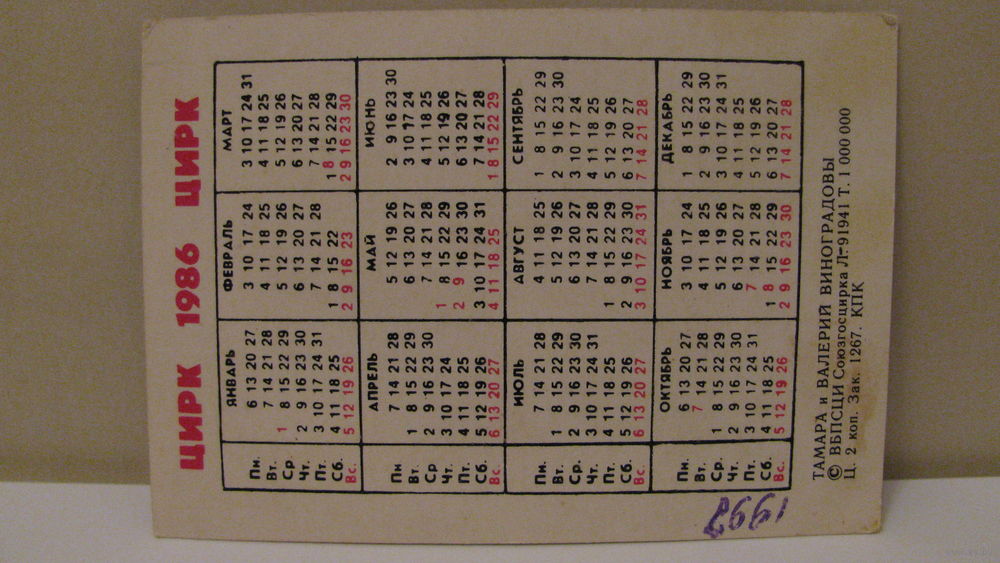 ЦИРК 1986 ЦИРК
ЯНВАРЬ ФЕВРАЛЬ МАРТ
Пн. 6 13 20 27 3 10 17 24 3 10 17 24 31
Вт. 7 14 21 28 4 11 18 25 4 11 18 25
Ср. 1 8 15 22 29 5 12 19 26 5 12 19 26
Чт. 2 9 16 23 30 6 13 20 27 6 13 20 27
Пт. 3 10 17 24 31 7 14 21 28 7 14 21 28
Сб. 4 11 18 25 1 8 15 22 1 8 15 22 29
Вс. 5 12 19 26 2 9 16 23 2 9 16 23 30
АПРЕЛЬ МАЙ ИЮНЬ
Пн 7 14 21 28 5 12 19 26 2 9 16 23 30
Вт. 1 8 15 22 29 6 13 20 27 3 10 17 24
Ср 2 9 16 23 30 7 14 21 28 4 11 18 25
Чт. 3 10 17 24 1 8 15 22 29 5 12 19 26
Пт. 4 11 18 25 2 9 16 23 30 6 13 20 27
Сб. 5 12 19 26 3 10 17 24 31 7 14 21 28
Вс. 6 13 20 27 4 11 18 25 1 8 15 22 29
ИЮЛЬ АВГУСТ СЕНТЯБРЬ
Пн. 7 14 21 28 4 11 18 25 1 8 15 22 29
Вт. 1 8 15 22 29 5 12 19 26 2 9 16 23 30
Ср. 2 9 16 23 30 6 13 20 27 3 10 17 24
Чт. 3 10 17 24 31 7 14 21 28 4 11 18 25
Пт. 4 11 18 25 1 8 15 22 29 5 12 19 26
Сб. 5 12 19 26 2 9 16 23 30 6 13 20 27
Вс. 6 13 20 27 3 10 17 24 31 7 14 21 28
ОКТЯБРЬ НОЯБРЬ ДЕКАБРЬ
Пн. 6 13 20 27 3 10 17 24 1 8 15 22 29
Вт. 7 14 21 28 4 11 18 25 2 9 16 23 30
Ср. 1 8 15 22 29 5 12 19 26 3 10 17 24 31
Чт. 2 9 16 23 30 6 13 20 27 4 11 18 25
Пт. 3 10 17 24 31 7 14 21 28 5 12 19 26
Сб. 4 11 18 25 1 8 15 22 29 6 13 20 27
Вс. 5 12 19 26 2 9 16 23 30 7 14 21 28
ТАМАРА и ВАЛЕРИЙ ВИНОГРАДОВЫ
© ВБПСЦИ Союзгосцирка Л-91941 Т. 1 000 000
Ц. 2 коп. Зак. 1267. КПК